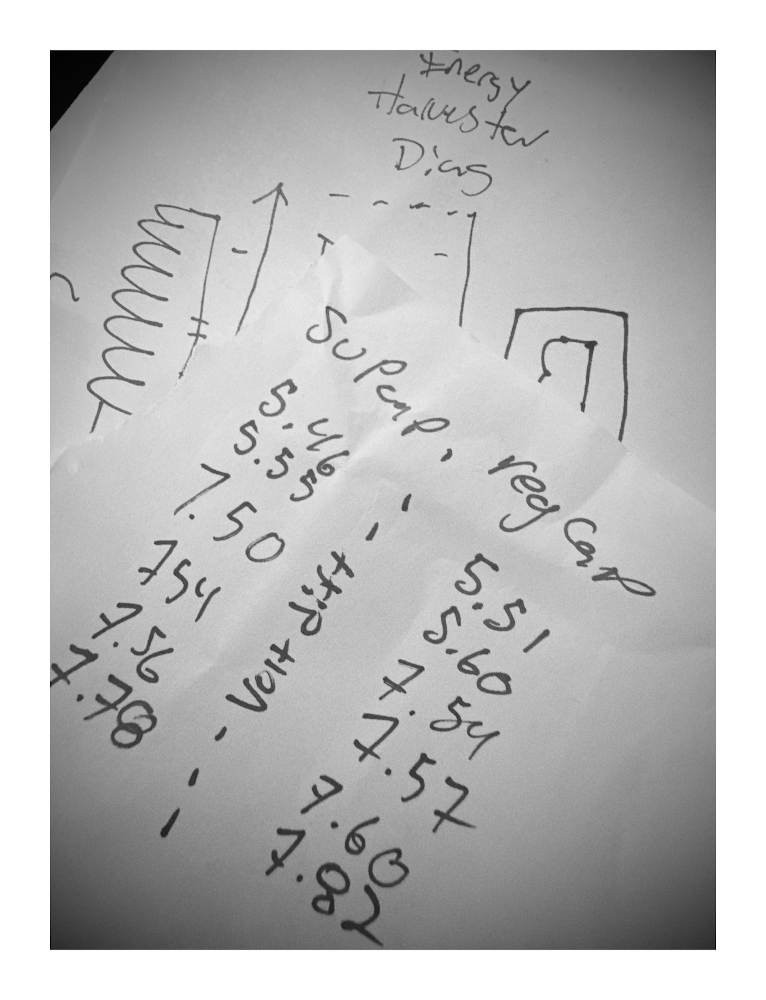 Energy
Harvester
Diag
Supcap. reg Cap
5.46 5.51
5.55 5.60
7.50 7.54
754 7.57
7.56 7.60
7.78 7.82
Volt diff